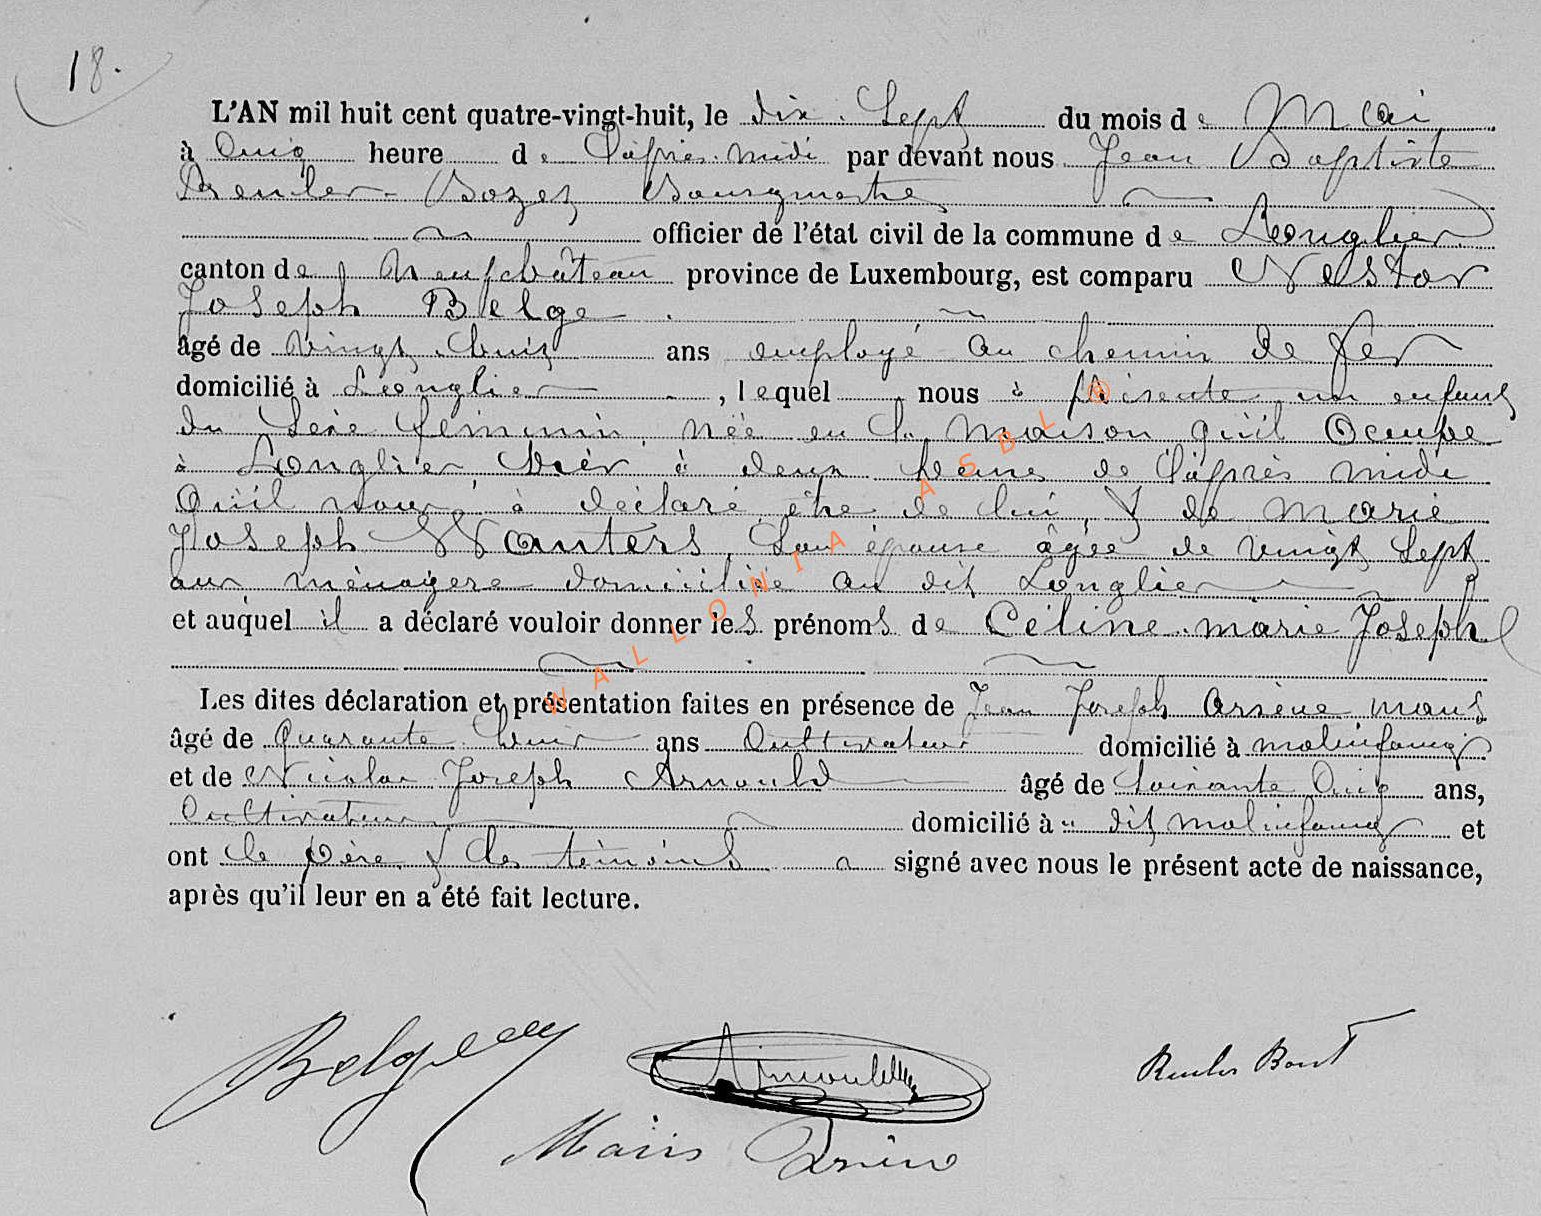 18.
L'AN mil huit cent quatre-vingt-huit, le dix Sept du mois de Mai
à Cinq heure de l'après-midi par devant nous Jean Baptiste
Renler-Bozet Bourgmestre
officier de l'état civil de la commune de Longlier
canton de Neufchâteau province de Luxembourg, est comparu Nestor
Joseph Belge
âgé de vingt huit ans employé au chemin de fer
domicilié à Longlier, lequel nous à présenté un enfant
du Sexe féminin, née en la maison qu'il Ocupe
à Longlier hièr à deux heures de l'après midi
Qu'il nous à déclaré être de lui, & de Marie
Joseph Wauters, Son épouse âgée de vingt Sept
ans ménagere domiciliée au dit Longlier
et auquel il a déclaré vouloir donner les prénoms de Céline-marie Joseph
Les dites déclaration et présentation faites en présence de Jean Joseph Arsène
âgé de Quarante huit ans Cultivateur domicilié à molinfaing
et de Nicolas Joseph Arnould âgé de Soixante Cinq ans,
Cultivateur domicilié à dit molinfaing et
ont le père & les témoins signé avec nous le présent acte de naissance,
après qu'il leur en a été fait lecture.
Belge
Arnould
WALLONIA ASBL ®